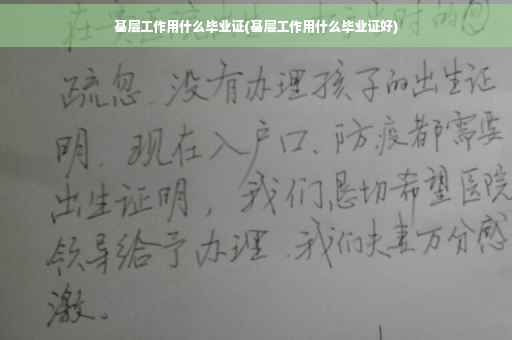 基层工作用什么毕业证(基层工作用什么毕业证好)
在
时的
疏忽、没有办理孩子的出生证
明、现在入户口、防疫都需要
出生证明，我们恳切希望医院
领导给予办理、我们夫妻万分感
激。